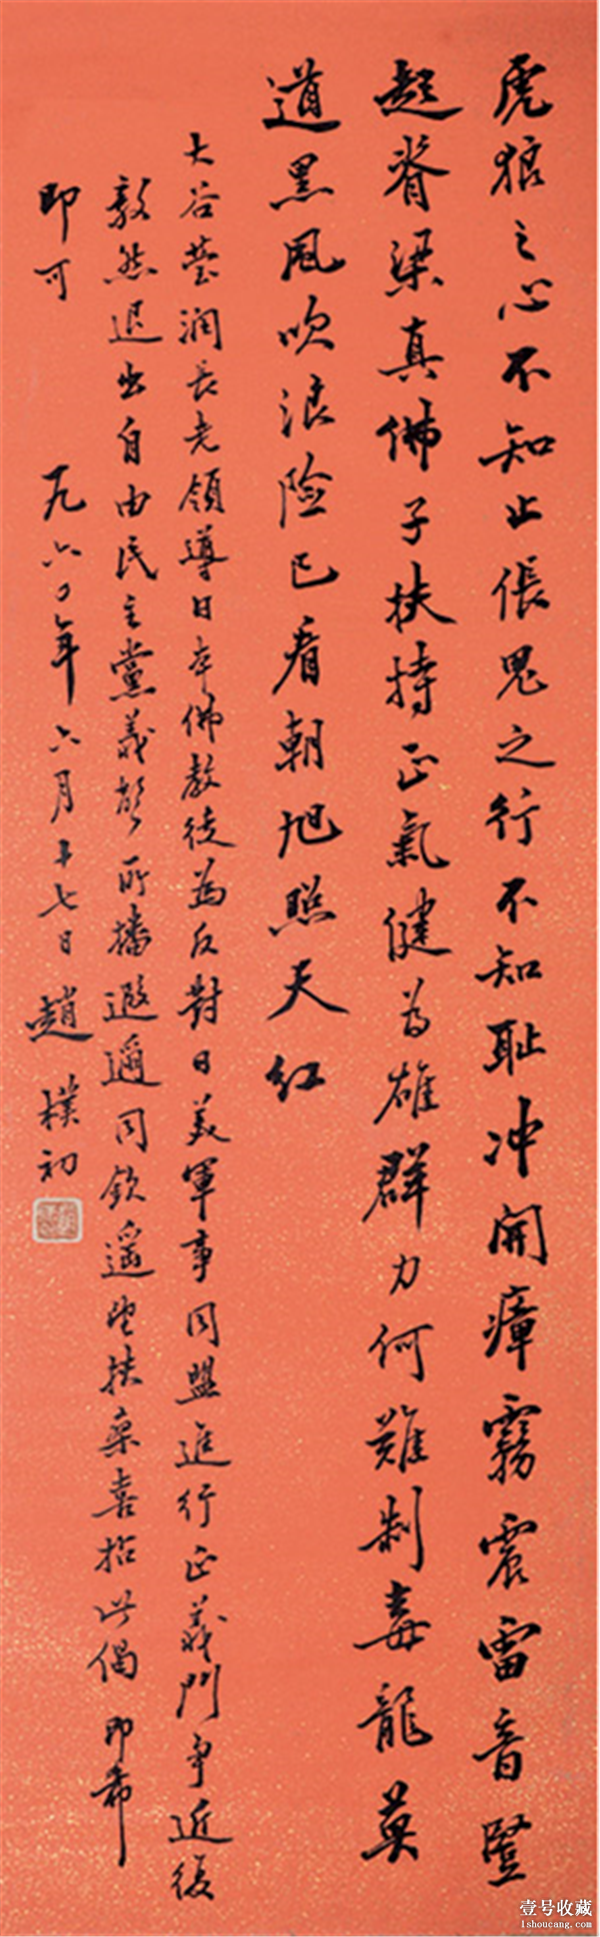 虎狼之心不知止倀鬼之行不知耻冲開瘴霧震雷音豎
起脊梁真佛子扶持正氣健為雄群力何難制毒龍莫
道黑風吹浪险已看朝旭照天红
大谷瑩润長老領導日本佛教徒為反對日美軍事同盟進行正義鬥争近復
毅然退出自由民主黨義聲所播遐邇同欽遥望扶桑喜拈此偈即希
即可
一九六〇年六月十七日趙樸初
壹号收藏
1shoucang.com